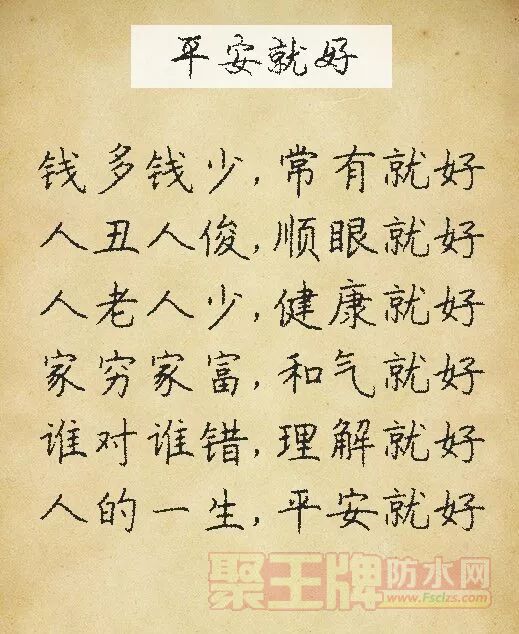 平安就好
钱多钱少,常有就好
人丑人俊,顺眼就好
人老人少,健康就好
家穷家富,和气就好
谁对谁错,理解就好
人的一生,平安就好
聚王牌防水网
www.Fsclzs.com